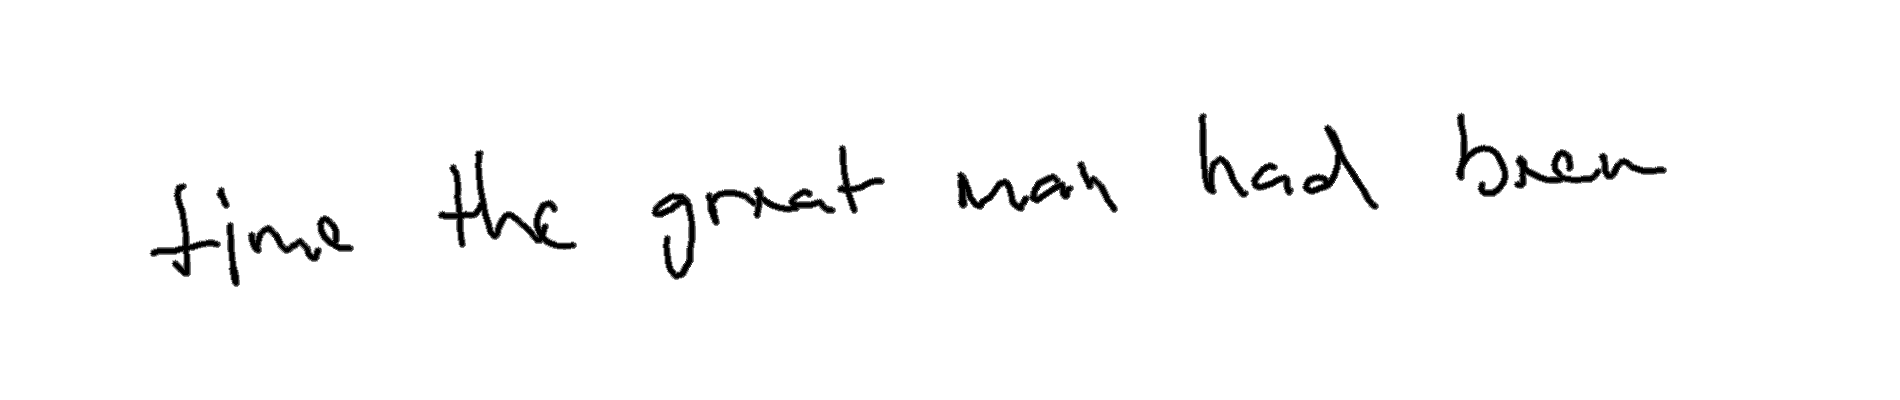 time the great man had been